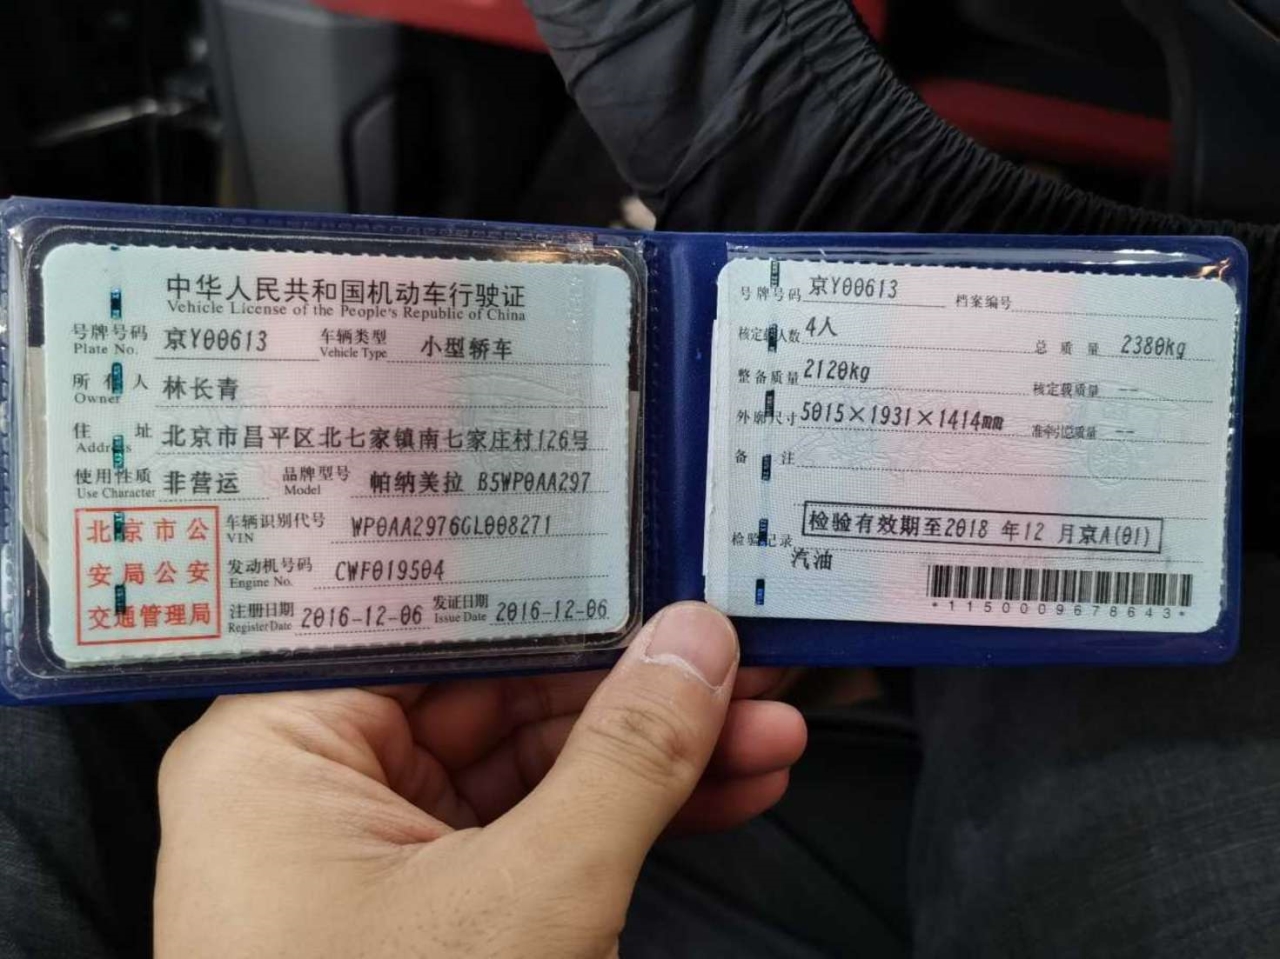 中华人民共和国机动车行驶证
Vehicle License of the People's Republic of China
号牌号码 京Y00613 车辆类型 小型轿车
Plate No. Vehicle Type
所有人 林长青
Owner
住址 北京市昌平区北七家镇南七家庄村126号
Address
使用性质 非营运 品牌型号 帕纳美拉 B5WP0AA297
Use Character Model
北京市公
安局公安
交通管理局
车辆识别代号 WP0AA2976GL008271
VIN
发动机号码 CWF019504
Engine No.
注册日期 2016-12-06 发证日期 2016-12-06
Register Date Issue Date
号牌号码 京Y00613 档案编号
核定载人数 4人 总质量 2380kg
整备质量 2120kg 核定载质量 --
外廓尺寸 5015×1931×1414mm 准牵引总质量 --
备注
检验记录 检验有效期至2018 年12 月京A(01)
汽油
*1150009678643*